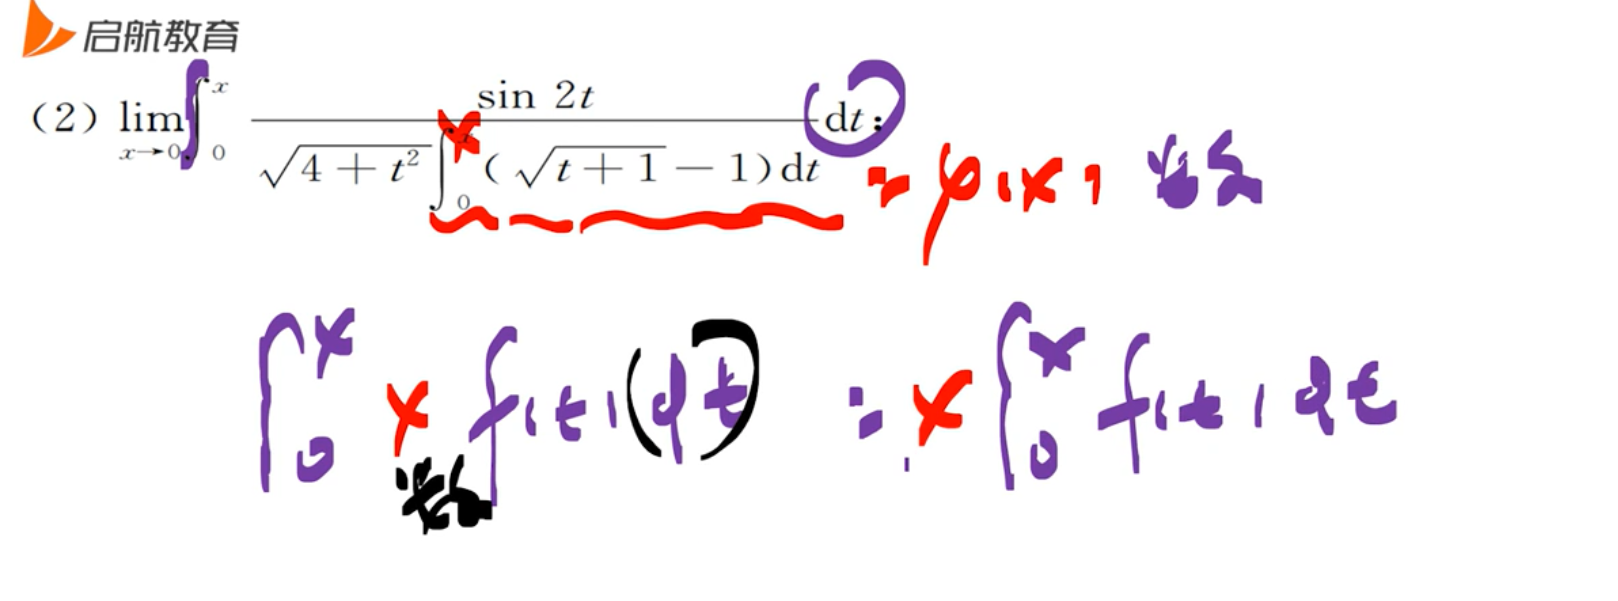 启航教育
(2) lim x→0 ∫₀ˣ sin 2t / (√(4+t²) ∫₀ˣ (√(t+1) − 1)dt) dt;
= φ(x) 常数
∫₀ˣ x f(t)(dt) = x ∫₀ˣ f(t)dt
常数